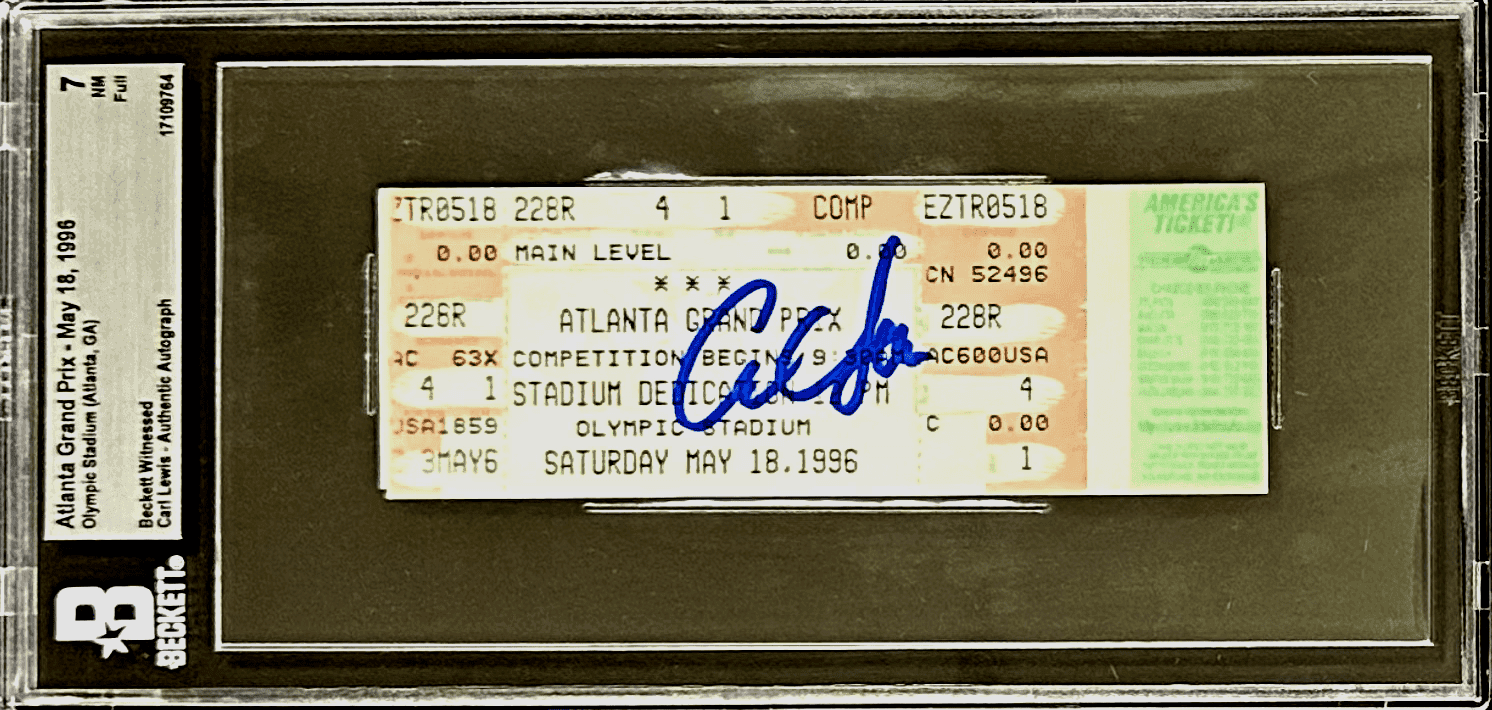 Atlanta Grand Prix - May 18, 1996
7
Olympic Stadium (Atlanta, GA)
NM
Full
Beckett Witnessed
Carl Lewis - Authentic Autograph
17109764
B
BECKETT
ZTR0518 228R 4 1 COMP EZTR0518
0.00 MAIN LEVEL 0.00 0.00
CN 52496
* * *
228R ATLANTA GRAND PRIX 228R
AC 63X COMPETITION BEGINS AC600USA
4 1 STADIUM DEDICATION PM 4
USA1859 OLYMPIC STADIUM C 0.00
3MAY6 SATURDAY MAY 18.1996 1
AMERICA'S
TICKET!